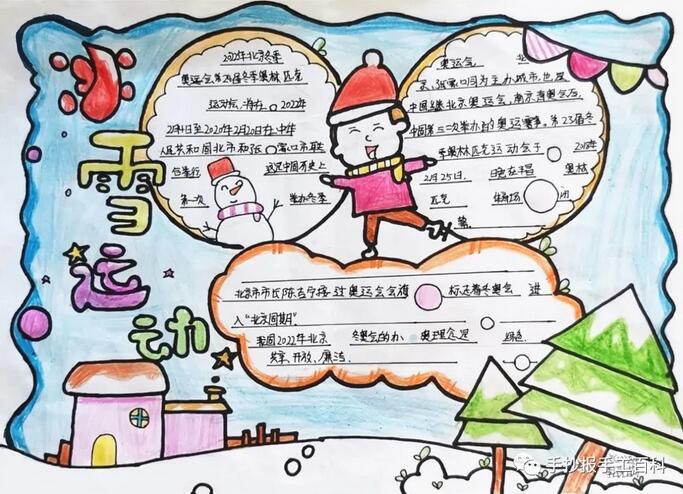 冰雪运动
2022年北京冬季
奥运会,第24届冬季奥林匹克
运动会,将在 2022年
2月4日至2020年2月20日在中华
人民共和国北京市和张家口市联
合举行 这是中国历史上
第一次 举办冬季
奥运会, 北
京、张家口同为主办城市,也是
中国继北京奥运会、南京青奥会后,
中国第三次举办的奥运赛事。第23届冬
季奥林匹克运动会于 2018年
2月25日, 晚在平昌 奥林
匹克 体育场 闭
幕。
北京市市长陈吉宁接过奥运会会旗 标志着冬奥会 进
入“北京周期”。
我国2022年北京 冬奥会的办 奥理念是 绿色
共享、开放、廉洁。
手抄报手工百科